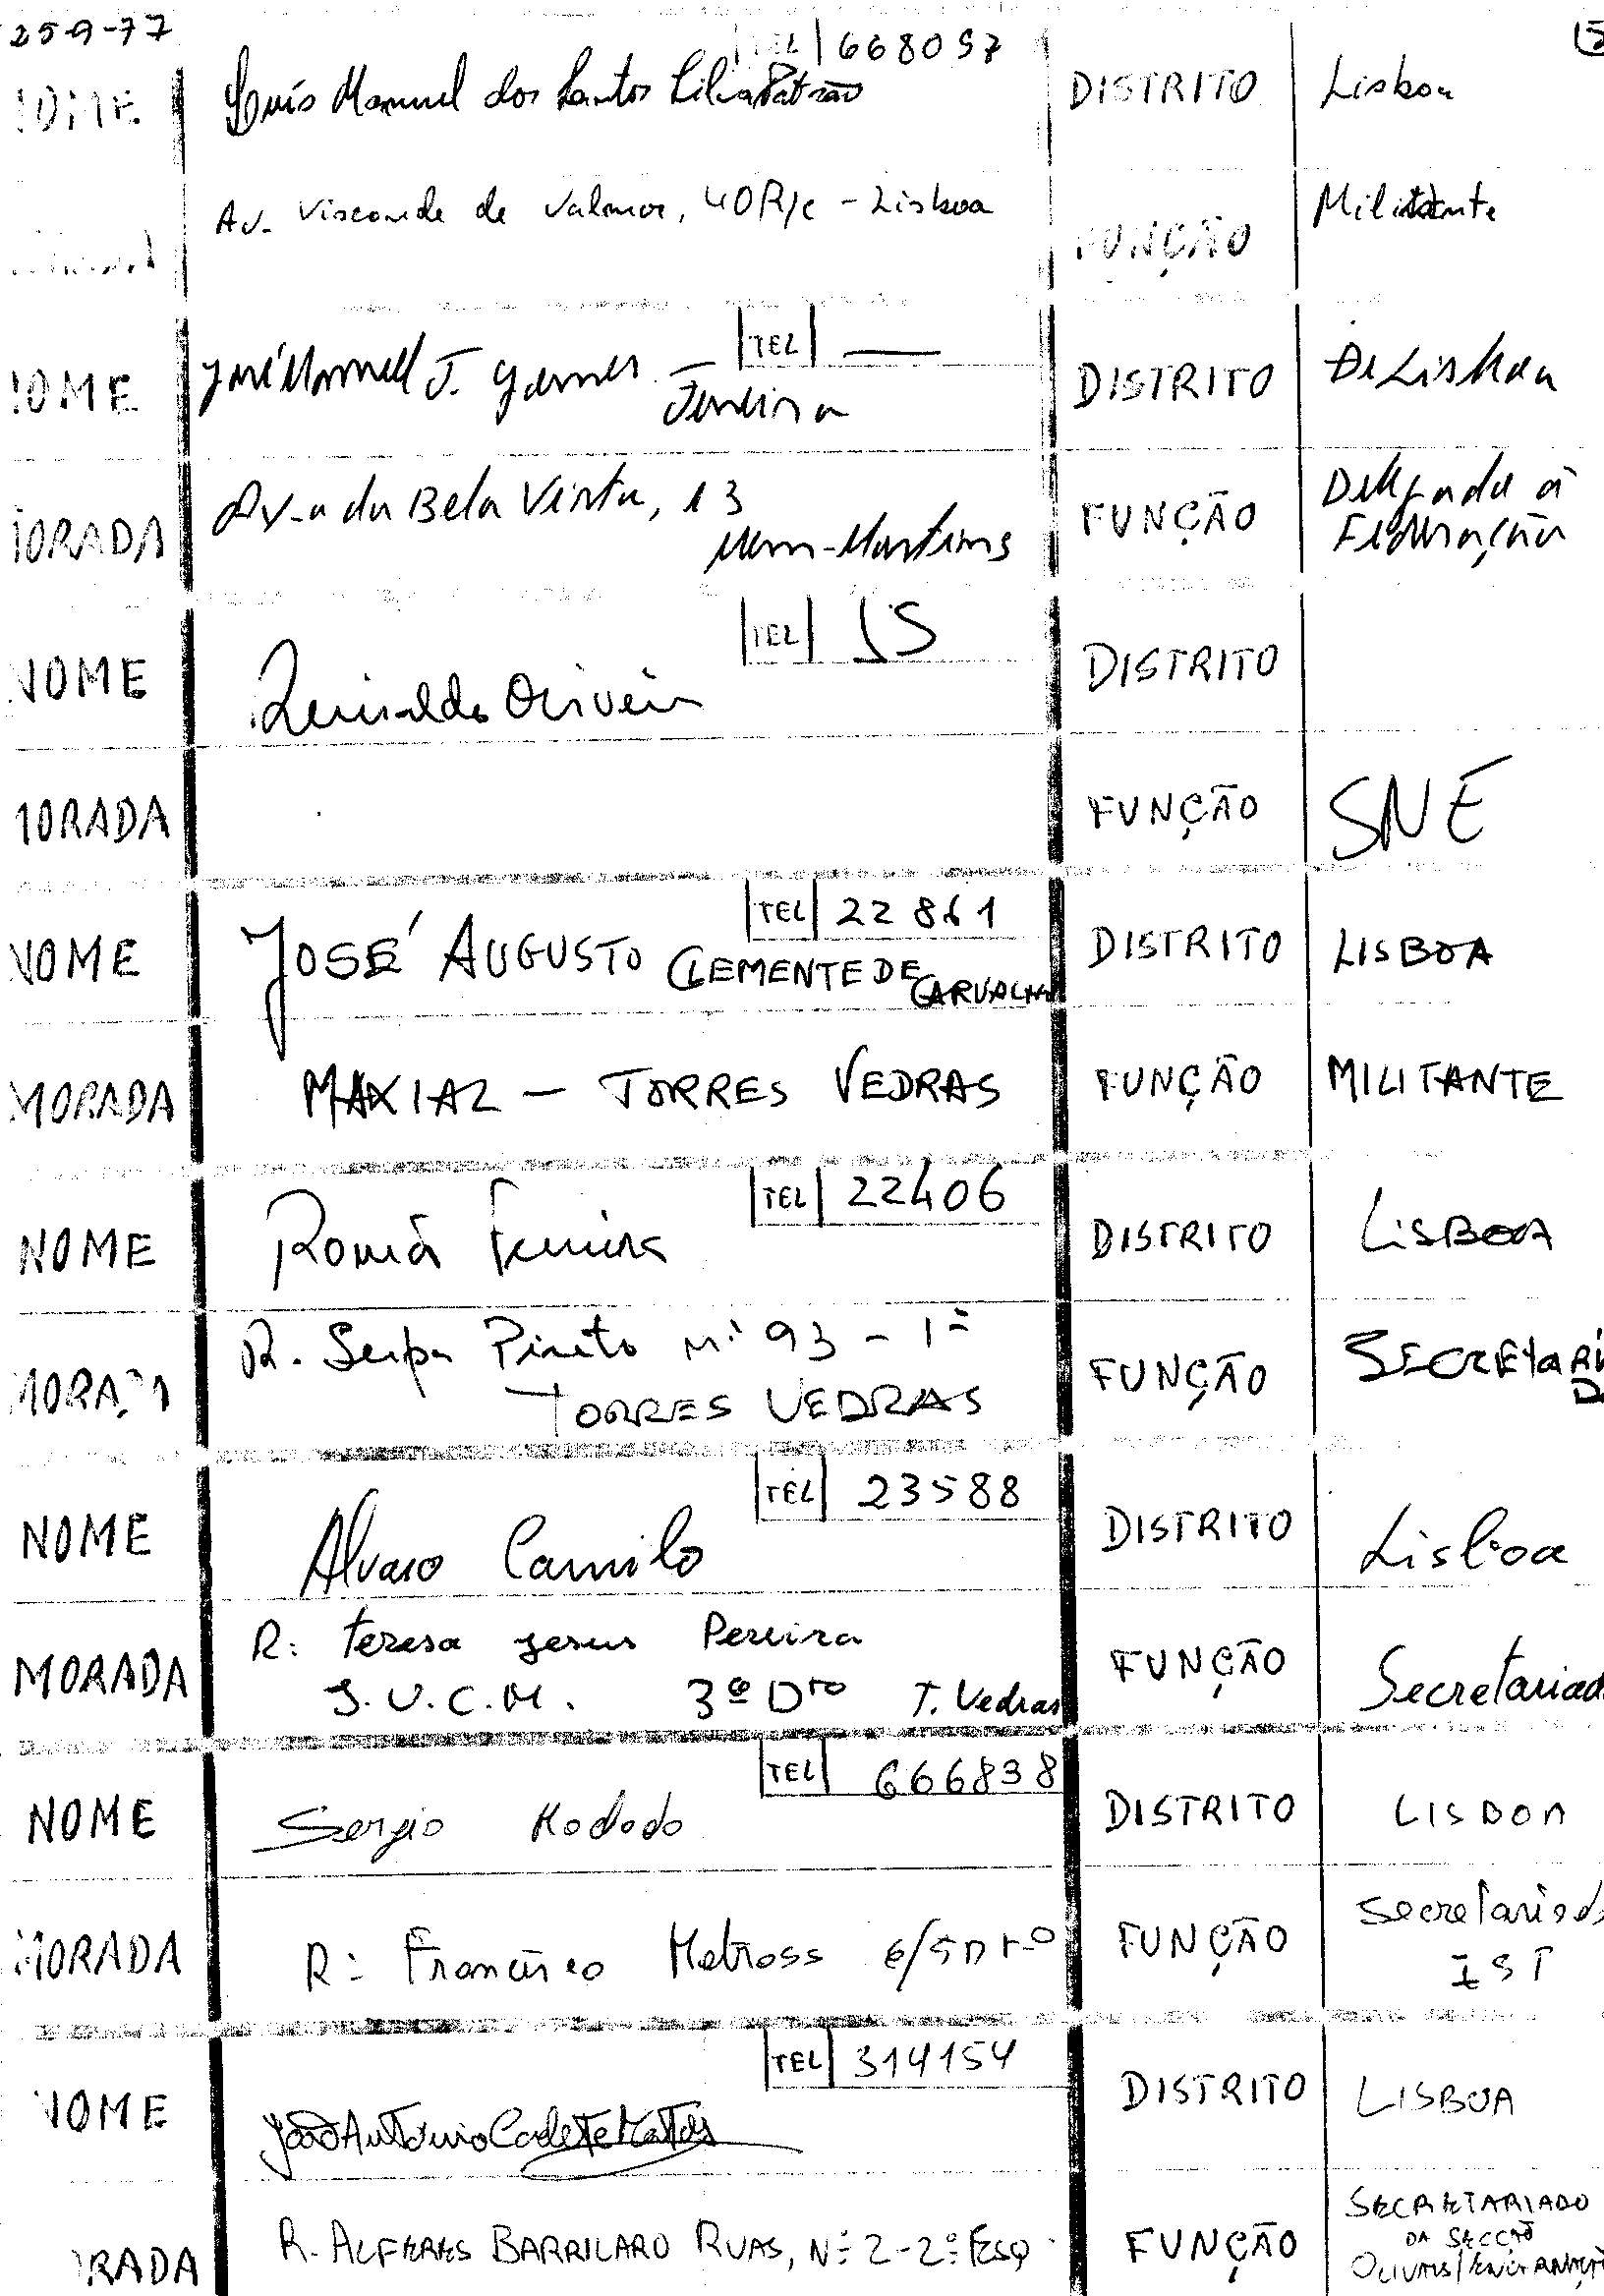 25-9-77
TEL 668097
NOME Luís Manuel dos Santos Silva Patrão DISTRITO Lisboa
Av. Visconde de Valmor, 40 R/c - Lisboa FUNÇÃO Militante
TEL —
NOME José Manuel J. Gomes Ferreira DISTRITO De Lisboa
MORADA Av.a da Bela Vista, 13 FUNÇÃO Delegado à
Mem-Martins Federação
TEL JS
NOME Reinaldo Oliveira DISTRITO
MORADA FUNÇÃO SNE
TEL 22861
NOME JOSÉ AUGUSTO CLEMENTE DE CARVALHO DISTRITO LISBOA
MORADA MAXIAL - TORRES VEDRAS FUNÇÃO MILITANTE
TEL 22406
NOME Romã Ferreira DISTRITO LISBOA
MORADA R. Serpa Pinto nº 93 - 1º FUNÇÃO SECRETARI
TORRES VEDRAS
TEL 23588
NOME Alvaro Camilo DISTRITO Lisboa
MORADA R: Teresa Jesus Pereira FUNÇÃO Secretariad
J.V.C.M. 3º Dto T. Vedras
TEL 666838
NOME Sergio DISTRITO LISBOA
MORADA R: Francisco Metrass 6/5 Dto FUNÇÃO Secretariado
IST
TEL 314154
NOME João António Cadete Matos DISTRITO LISBOA
MORADA R. ALFERES BARRILARO RUAS, Nº 2-2º ESQ FUNÇÃO SECRETARIADO
DA SECÇÃO
OLIVAIS/